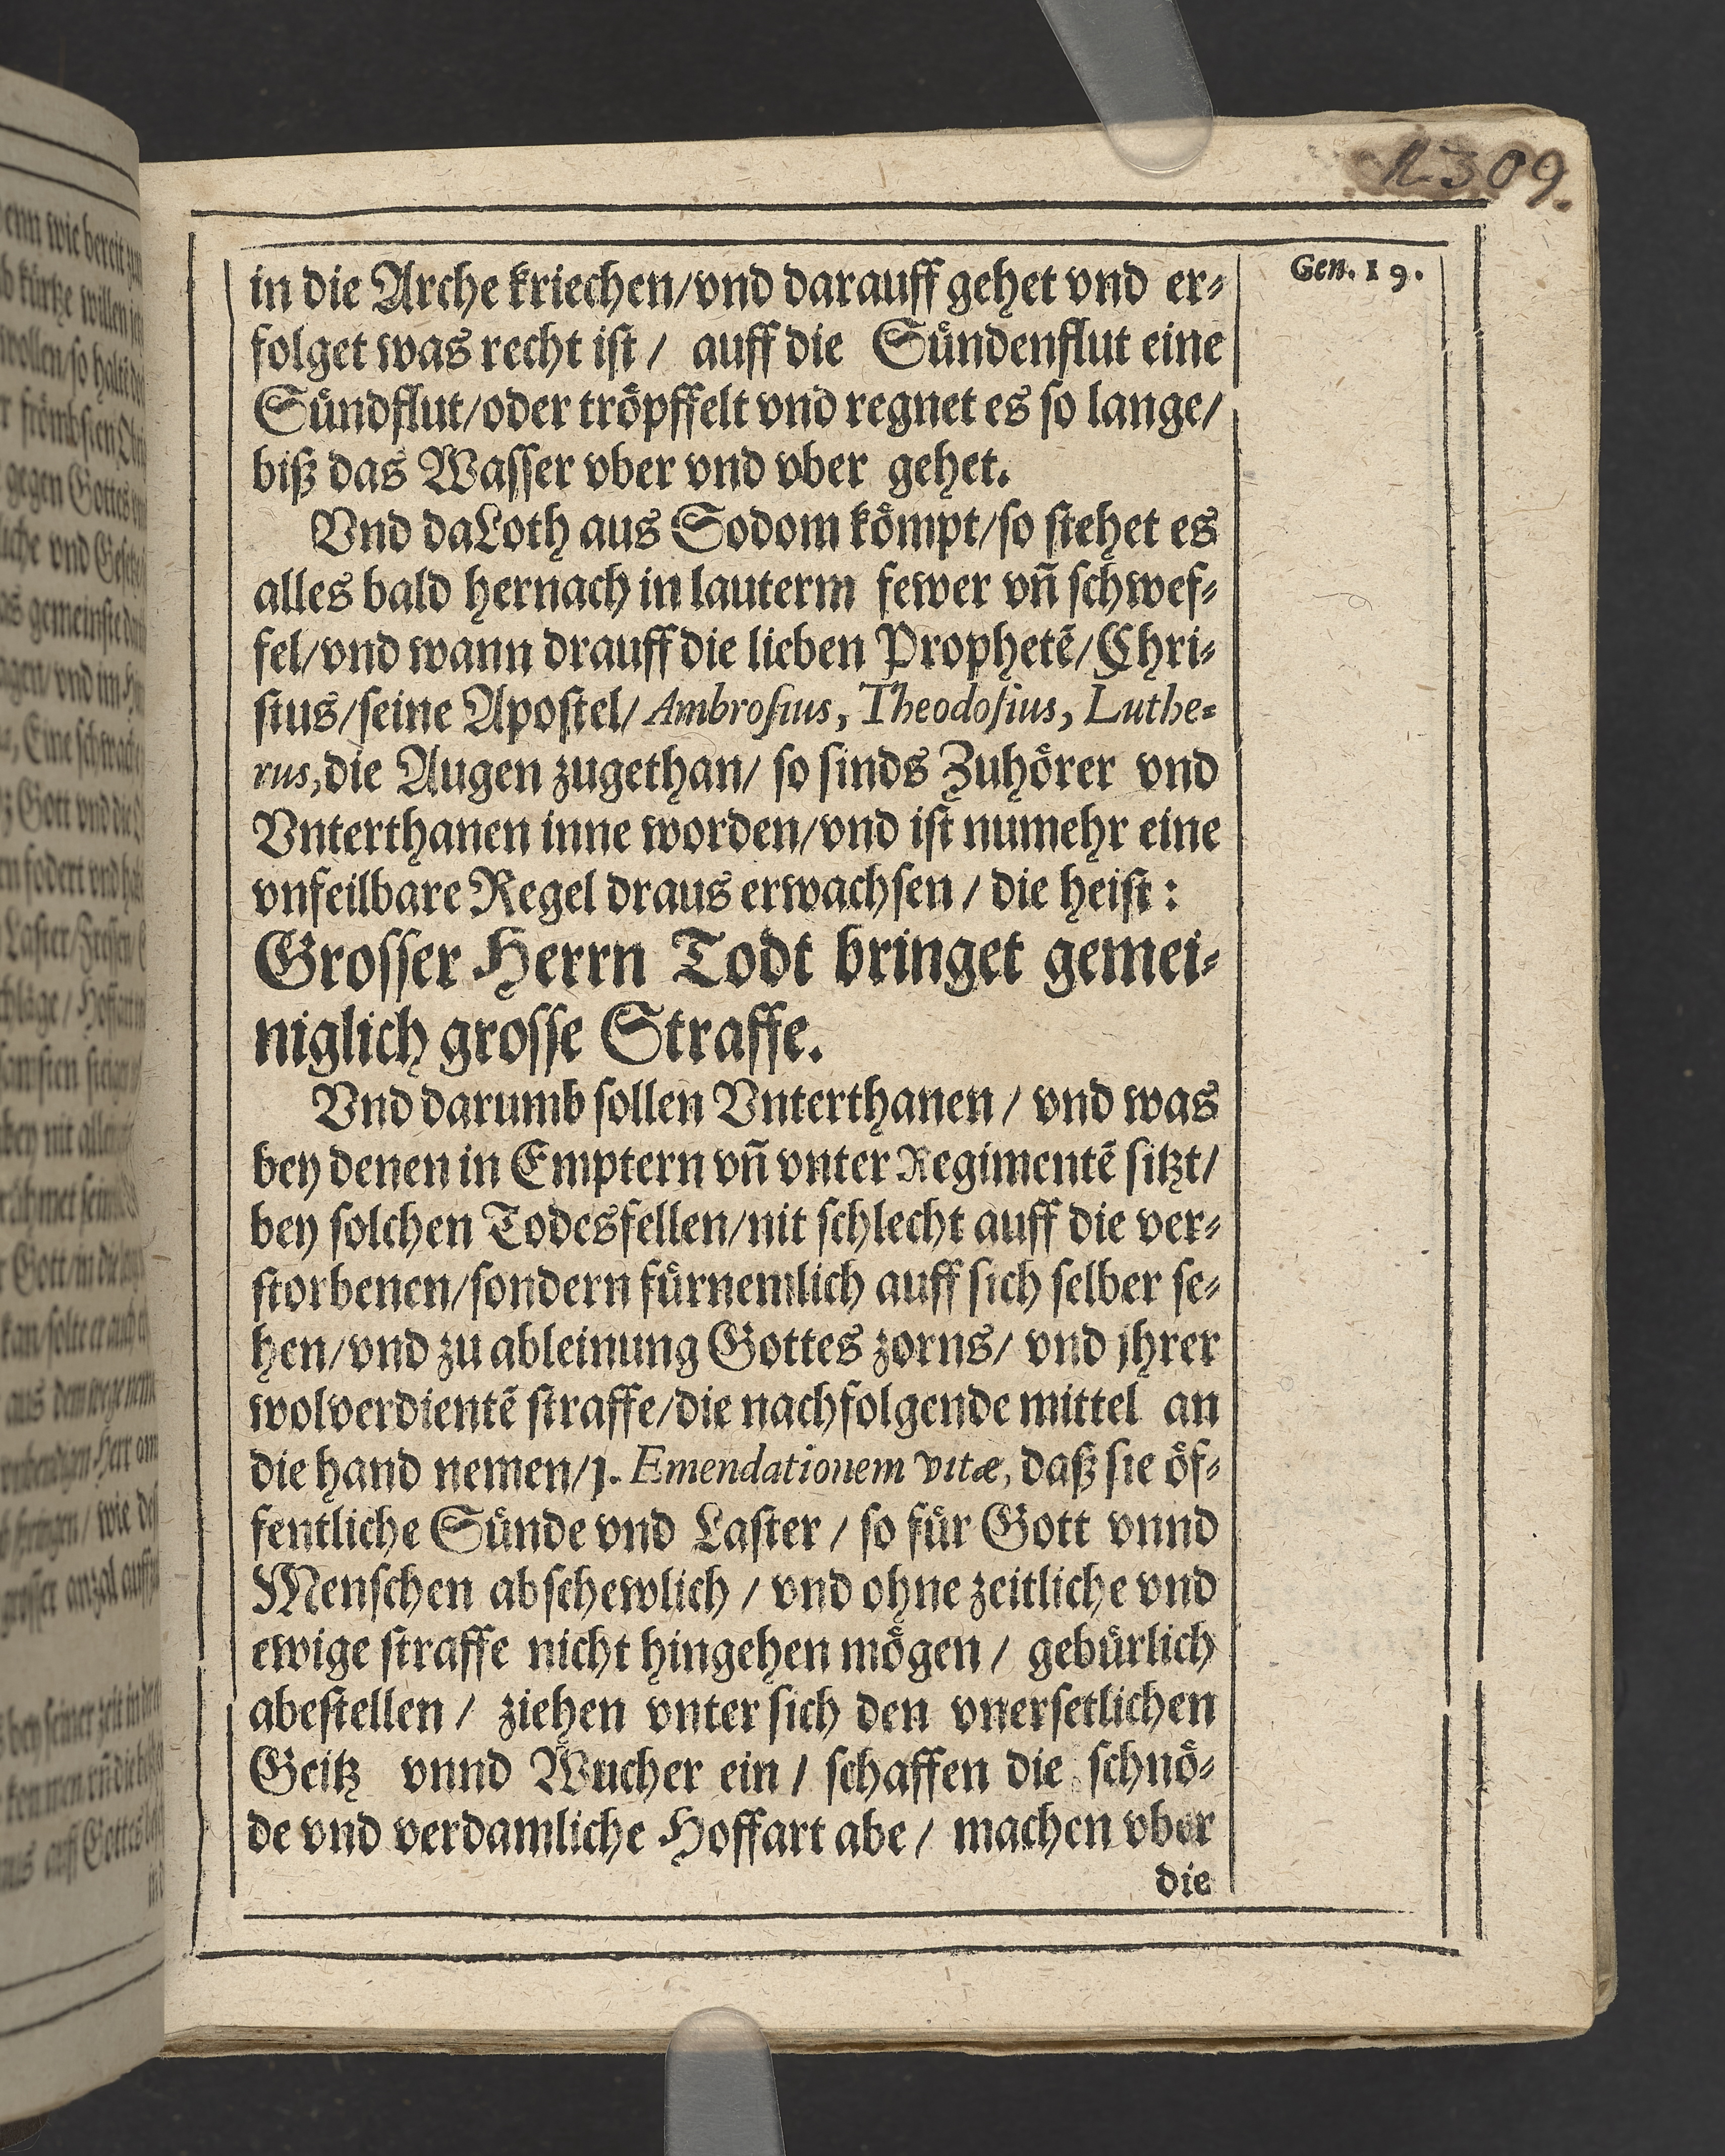 1309.
Gen. 19.
in die Arche kriechen/vnd darauff gehet vnd er⸗
folget was recht ist / auff die Sündenflut eine
Sündflut/oder tröpffelt vnd regnet es so lange/
biß das Wasser vber vnd vber gehet.
Vnd da Loth aus Sodom kömpt/so stehet es
alles bald hernach in lauterm fewer vn̄ schwef⸗
fel/vnd wann drauff die lieben Prophetē/Chri⸗
stus/seine Apostel/ Ambrosius, Theodosius, Luthe⸗
rus, die Augen zugethan/ so sinds Zuhörer vnd
Vnterthanen inne worden/vnd ist numehr eine
vnfeilbare Regel draus erwachsen / die heist :
Grosser Herrn Todt bringet gemei⸗
niglich grosse Straffe.
Vnd darumb sollen Vnterthanen / vnd was
bey denen in Emptern vn̄ vnter Regimentē sitzt/
bey solchen Todesfellen/nit schlecht auff die ver⸗
storbenen/sondern fürnemlich auff sich selber se⸗
hen/vnd zu ableinung Gottes zorns/ vnd jhrer
wolverdientē straffe/die nachfolgende mittel an
die hand nemen/1. Emendationem vitæ, daß sie öf⸗
fentliche Sünde vnd Laster / so für Gott vnnd
Menschen abschewlich / vnd ohne zeitliche vnd
ewige straffe nicht hingehen mögen / gebürlich
abestellen / ziehen vnter sich den vnersetlichen
Geitz vnnd Wucher ein / schaffen die schnö⸗
de vnd verdamliche Hoffart abe / machen vber
die